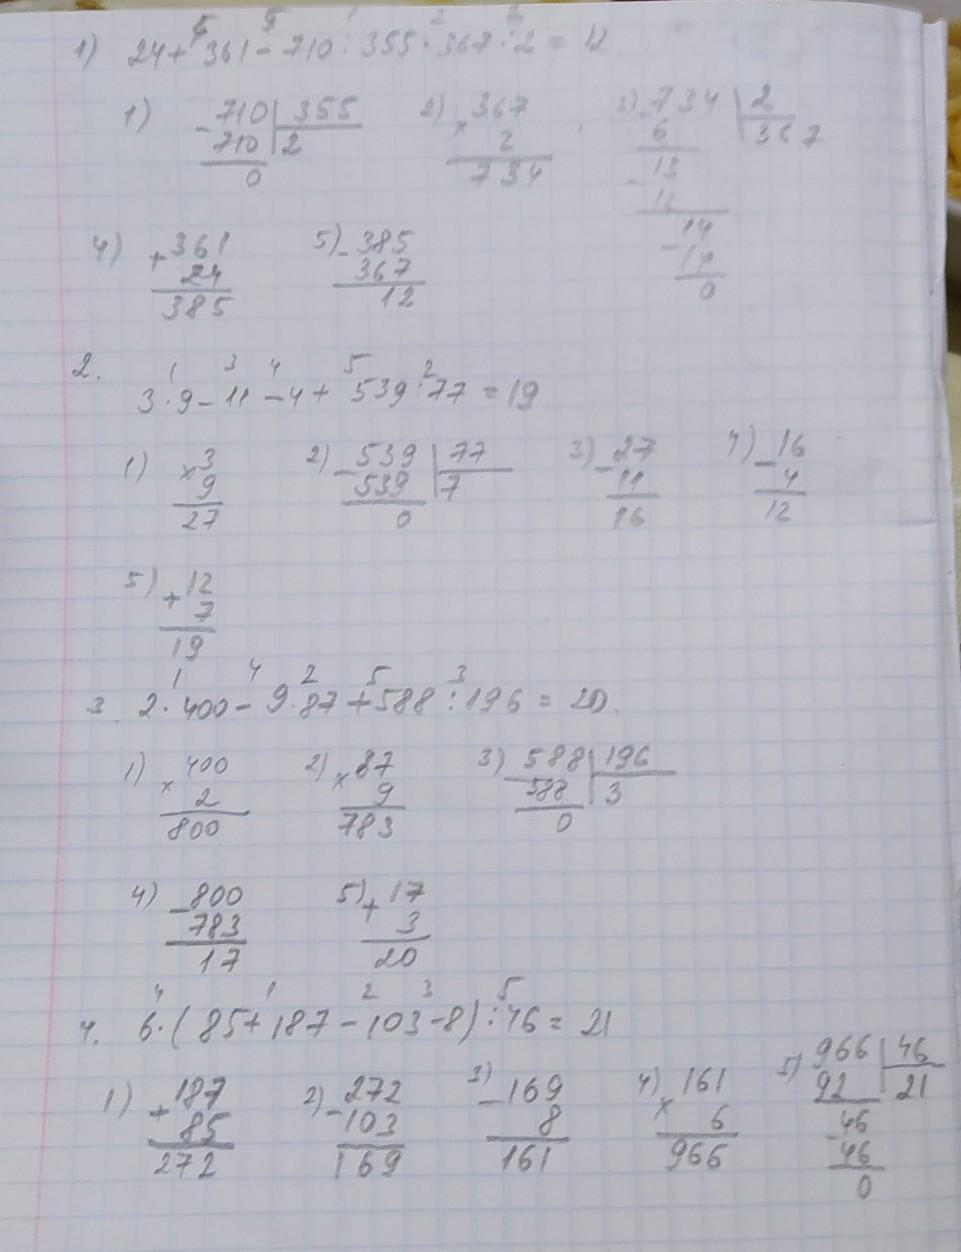 1) 24 + 361 - 710 : 355 · 367 : 2 = 12
1) 710 | 355 2) 367 3) 734 | 2
- 710 | 2 × 2 6 367
0 734 - 13
12
- 14
14
0
4) + 361 5) - 385
24 367
385 12
2. 3 · 9 - 11 - 4 + 539 : 77 = 19
1) × 3 2) - 539 | 77 3) - 27 4) - 16
9 539 | 7 11 4
27 0 16 12
5) + 12
7
19
3. 2 · 400 - 9 · 87 + 588 : 196 = 20.
1) × 400 2) × 87 3) - 588 | 196
2 9 588 | 3
800 783 0
4) - 800 5) + 17
783 3
17 20
4. 6 · ( 85 + 187 - 103 - 8 ) : 46 = 21
1) + 187 2) - 272 3) - 169 4) × 161 5) 966 | 46
85 103 8 6 92 | 21
272 169 161 966 - 46
46
0